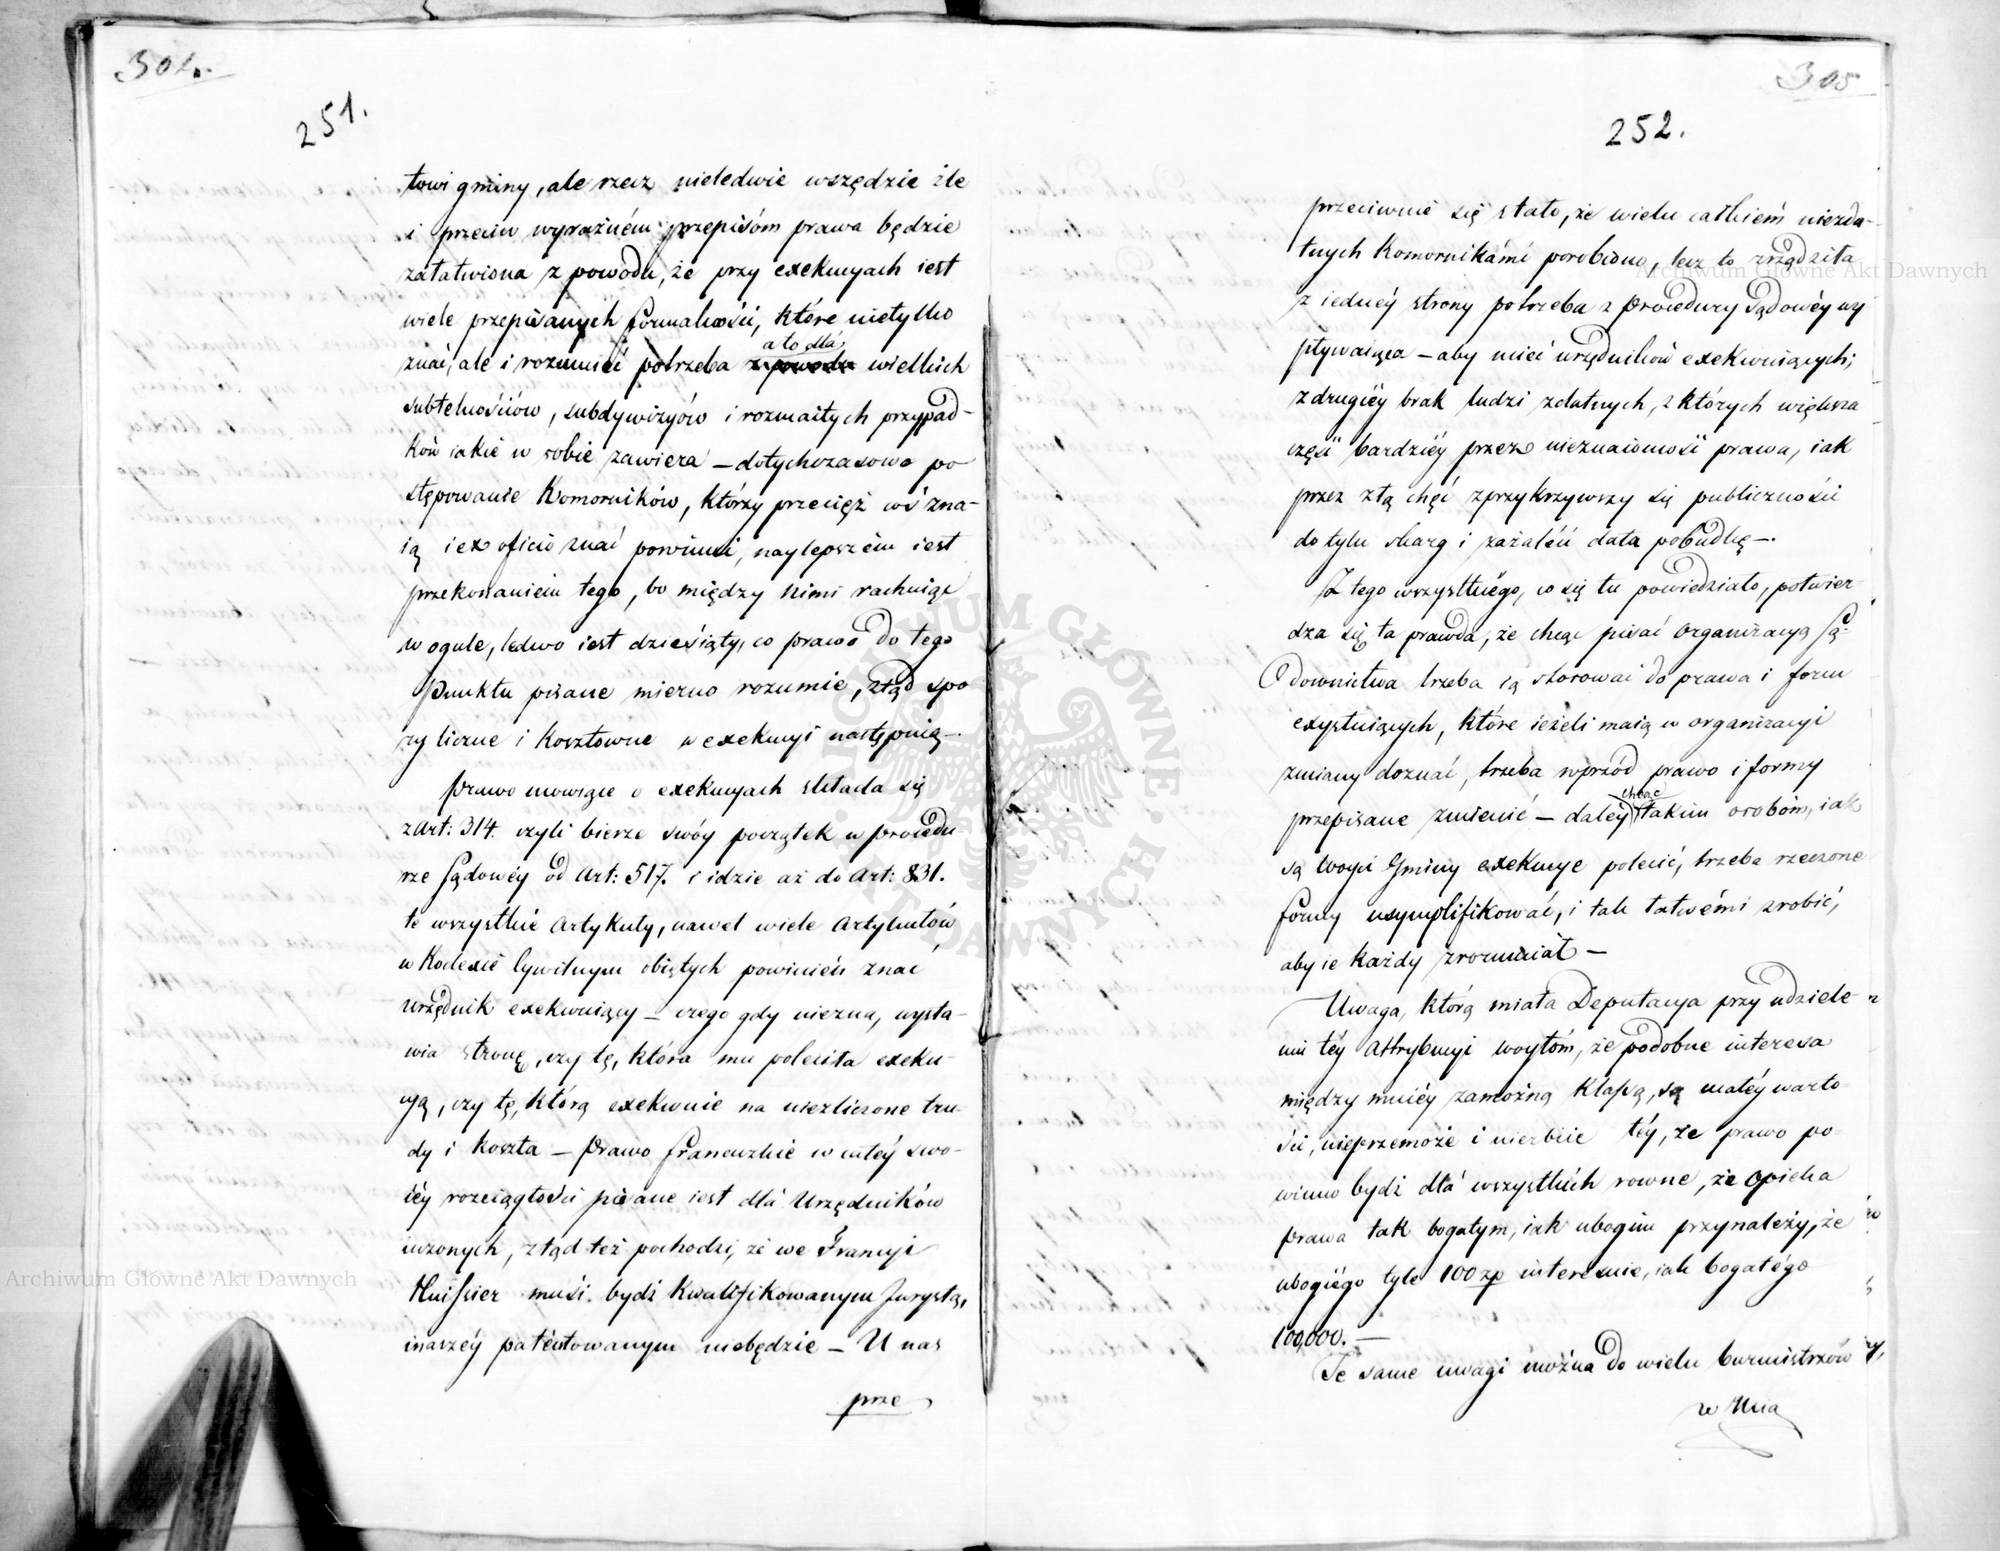 304.
251.
towi gminy, ale rzecz nieledwie wszędzie źle
i przeciw wyraźném przepisóm prawa będzie
załatwiona z powodu, że przy exekucyach iest
wiele przepisanych formalności, które nietylko
znać, ale i rozumieć potrzeba a to dla z powodu wielkich
subtelnościów, subdywizyów i rozmaitych przypad-
ków iakie w sobie zawiera – dotychczasowe po
stępowanie Komorników, którzy przecięż coś zna-
ią i ex oficio znać powinni, naylepszém iest
przekonaniem tego, bo między nimi rachuiąc
w ogule, ledwo iest dziesiąty, co prawo do tego
punktu pisane mierno rozumie, ztąd spo
ry liczne i kosztowne w exekucyi następuią –.
Prawo mowiące o exekucyach składa się
z Art: 314. czyli bierze swóy początek w procedu
rze Sądowéy od Art: 517. i idzie aż do Art: 831.
te wszystkie Artykuły, nawet wiele Artykułów
w Kodexie Cywilnym obiętych powinién znać
urzędnik exekwuiący – czego gdy niezna, wysta-
wia stronę, czy tę, która mu poleciła exeku-
cyą, czy tę, którą exekwuie na niezliczone tru-
dy i koszta – Prawo francuzkie w całéy swo-
iéy rozciągłości pisane iest dlá Urzędników
uczonych, ztąd też pochodzi, że we Francyi
Huissier musi bydź kwalifikowanym Jurystą,
inaczéy patentowanym niebędzie – U nas
prze
305
252.
przeciwnie się stało, że wielu całkiem niezda-
tnych Komornikámi porobiono, lecz to zrządziła
z iednéy strony potrzeba z procedury Sądowéy wy
pływaiąca – aby mieć urzędników exekwuiących;
z drugiéy brak ludzi zdatnych, z których większa
część bardziéy przez nieznaiomość prawa, iak
przez złą chęć zprzykrzywszy się publiczności
do tylu skarg i zażaléń dała pobudkę –.
Z tego wszystkiégo, co się tu powiedziało, potwier-
dza się ta prawda, że chcąc pisać Organizacyą Są-
downictwa trzeba ią stosować do prawa i form
exystuiących, które ieżeli maią w organizacyi
zmiany doznać, trzeba wprzód prawo i formy
przepisane zmienić – daléy chcąc takim osobóm, iak
są Woyci Gminy exekucye polecić, trzeba rzeczone
formy usymplifikować, i tak łatwémi zrobić,
aby ie każdy zrozumiał –
Uwaga, którą miała Deputacya przy udziele-
niu téy Attrybucyi woytóm, że podobne interesa
między mniéy zamożną klassą, są małéy warto-
ści, nieprzemoże i niezbiie téy, że prawo po-
winno bydź dlá wszystkich rowne, że opieka
prawa tak bogatym, iak ubogim przynależy, że
ubogiégo tyle 100 zp interessuie, iak bogatégo
100,000. –
Te same uwagi można do wielu burmistrzów
w Mia
Archiwum Główne Akt Dawnych
Archiwum Główne Akt Dawnych
ARCHIWUM GŁÓWNE AKT DAWNYCH